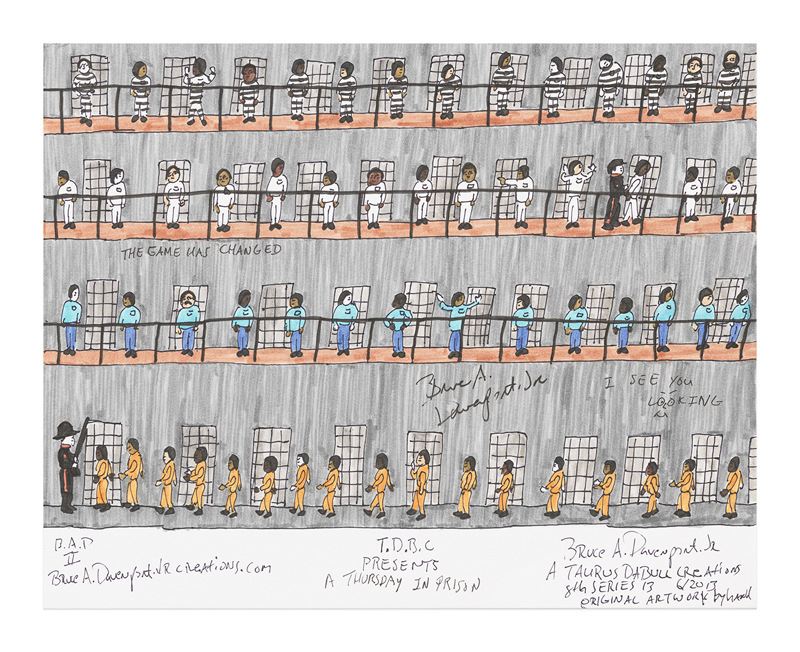 THE GAME HAS CHANGED
Bruce A.
Davenport.Jr
I SEE YOU
LOOKING
B.A.D
II
Bruce A.Davenport.JR CREATIONS.COM
T.D.B.C
PRESENTS
A THURSDAY IN PRISON
Bruce A.Davenport.Jr
A TAURUS DABULL CREATIONS
8th SERIES 13 6/2013
ORIGINAL ARTWORK by hand